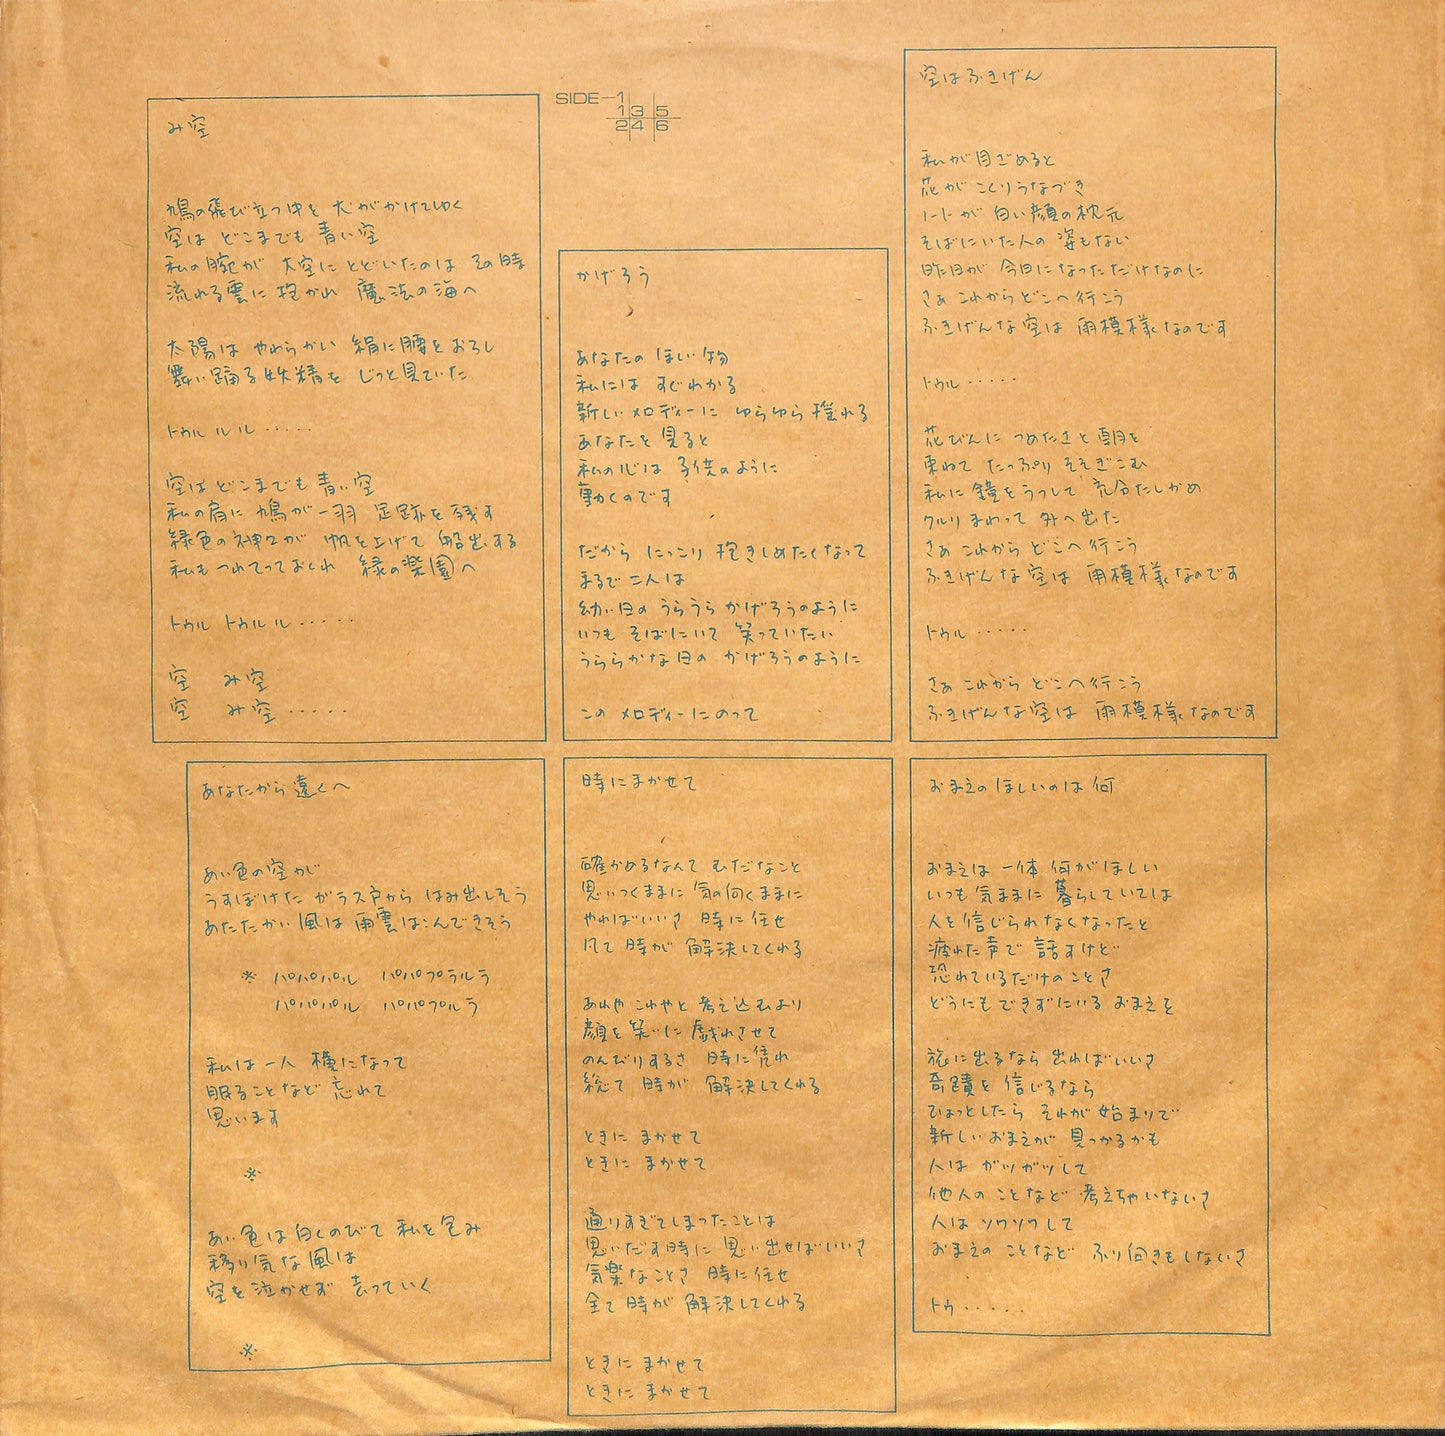 SIDE-1
1 3 5
2 4 6
み空
鳩の飛び立つ中を 犬がかけてゆく
空は どこまでも 青い空
私の腕が 大空に とどいたのは その時
流れる雲に 抱かれ 魔法の海へ
太陽は やわらかい 絹に腰を おろし
舞い踊る妖精を じっと見ていた
トゥル ル ル ・・・・・
空は どこまでも 青い空
私の肩に 鳩が一羽 足跡を残す
緑色の神々が 帆を上げて 船出する
私も つれてって おくれ 緑の楽園へ
トゥル トゥル ル ・・・・・
空 み空
空 み空・・・・・
あなたから遠くへ
あい色の空が
うすぼけた ガラス戸から はみ出しそう
あたたかい 風は 雨雲はこんできそう
※ パパパパル パパパプラルラ
パパパパル パパパプルラ
私は 一人 横になって
眠ることなど 忘れて
思います
※
あい色は 白くのびて 私を包み
移り気な 風は
空を 泣かせず 去っていく
※
かげろう
あなたの ほしい物
私には すぐわかる
新しい メロディーに ゆらゆら 揺れる
あなたを 見ると
私の心は 子供のように
動くのです
だから にっこり 抱きしめたくなって
まるで 二人は
幼い日の うらうら かげろうのように
いつも そばにいて 笑っていたい
うららかな 日の かげろうのように
この メロディーにのって
時にまかせて
確かめるなんて むだなこと
思いつくままに 気の向くままに
やればいいさ 時に任せ
凡て 時が 解決してくれる
あれや これやと 考え込むより
顔を 笑いに 戯れさせて
のんびりするさ 時に
総て 時が 解決してくれる
ときに まかせて
ときに まかせて
通りすぎてしまったことは
思いだす時に 思い出せばいいさ
気楽なことさ 時に任せ
全て 時が 解決してくれる
ときに まかせて
ときに まかせて
空はふきげん
私が目ざめると
花が こくりうなづき
ノートが 白い顔の枕元
そばにいた人の 姿もない
昨日が 今日になっただけなのに
さぁ これから どこへ行こう
ふきげんな空は 雨模様なのです
トゥル ・・・・・
花びんに つめたさと 朝を
束ねて たっぷり そそぎこむ
私に 鏡を うつして 充分たしかめ
クルリ まわって 外へ出た
さぁ これから どこへ行こう
ふきげんな 空は 雨模様なのです
トゥル ・・・・・
さぁ これから どこへ行こう
ふきげんな空は 雨模様なのです
おまえの ほしいのは 何
おまえは 一体 何が ほしい
いつも 気ままに 暮らしていては
人を 信じられなくなったと
疲れた 声で 話すけど
恐れているだけのことさ
どうにもできずにいる おまえを
旅に 出るなら 出ればいいさ
奇蹟を 信じるなら
ひょっとしたら それが 始まりで
新しい おまえが 見つかるかも
人は ガツガツして
他人の ことなど 考えちゃいないさ
人は ソワソワして
おまえの ことなど ふり向きもしないさ
トゥ・・・・・